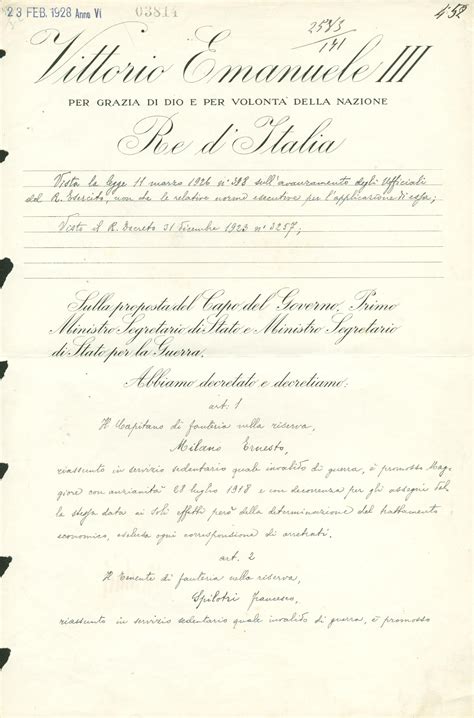 23 FEB. 1928 Anno VI
03814
452
2573
141
Vittorio Emanuele III
PER GRAZIA DI DIO E PER VOLONTA' DELLA NAZIONE
Re d'Italia
Vista la legge 11 marzo 1926 n° 398 sull'avanzamento degli Ufficiali
del R. Esercito, non che le relative norme esecutive per l'applicazione di essa;
Visto il R. Decreto 31 dicembre 1923 n° 3257;
Sulla proposta del Capo del Governo, Primo
Ministro Segretario di Stato e Ministro Segretario
di Stato per la Guerra.
Abbiamo decretato e decretiamo:
art. 1
Il Capitano di fanteria nella riserva,
Milano Ernesto,
riassunto in servizio sedentario quale invalido di guerra, è promosso Mag-
giore con anzianità 28 luglio 1918 e con decorrenza per gli assegni dal-
la stessa data ai soli effetti però della determinazione del trattamento
economico, esclusa ogni corresponsione di arretrati.
art. 2
Il Tenente di fanteria nella riserva,
Spilotri Francesco,
riassunto in servizio sedentario quale invalido di guerra, è promosso